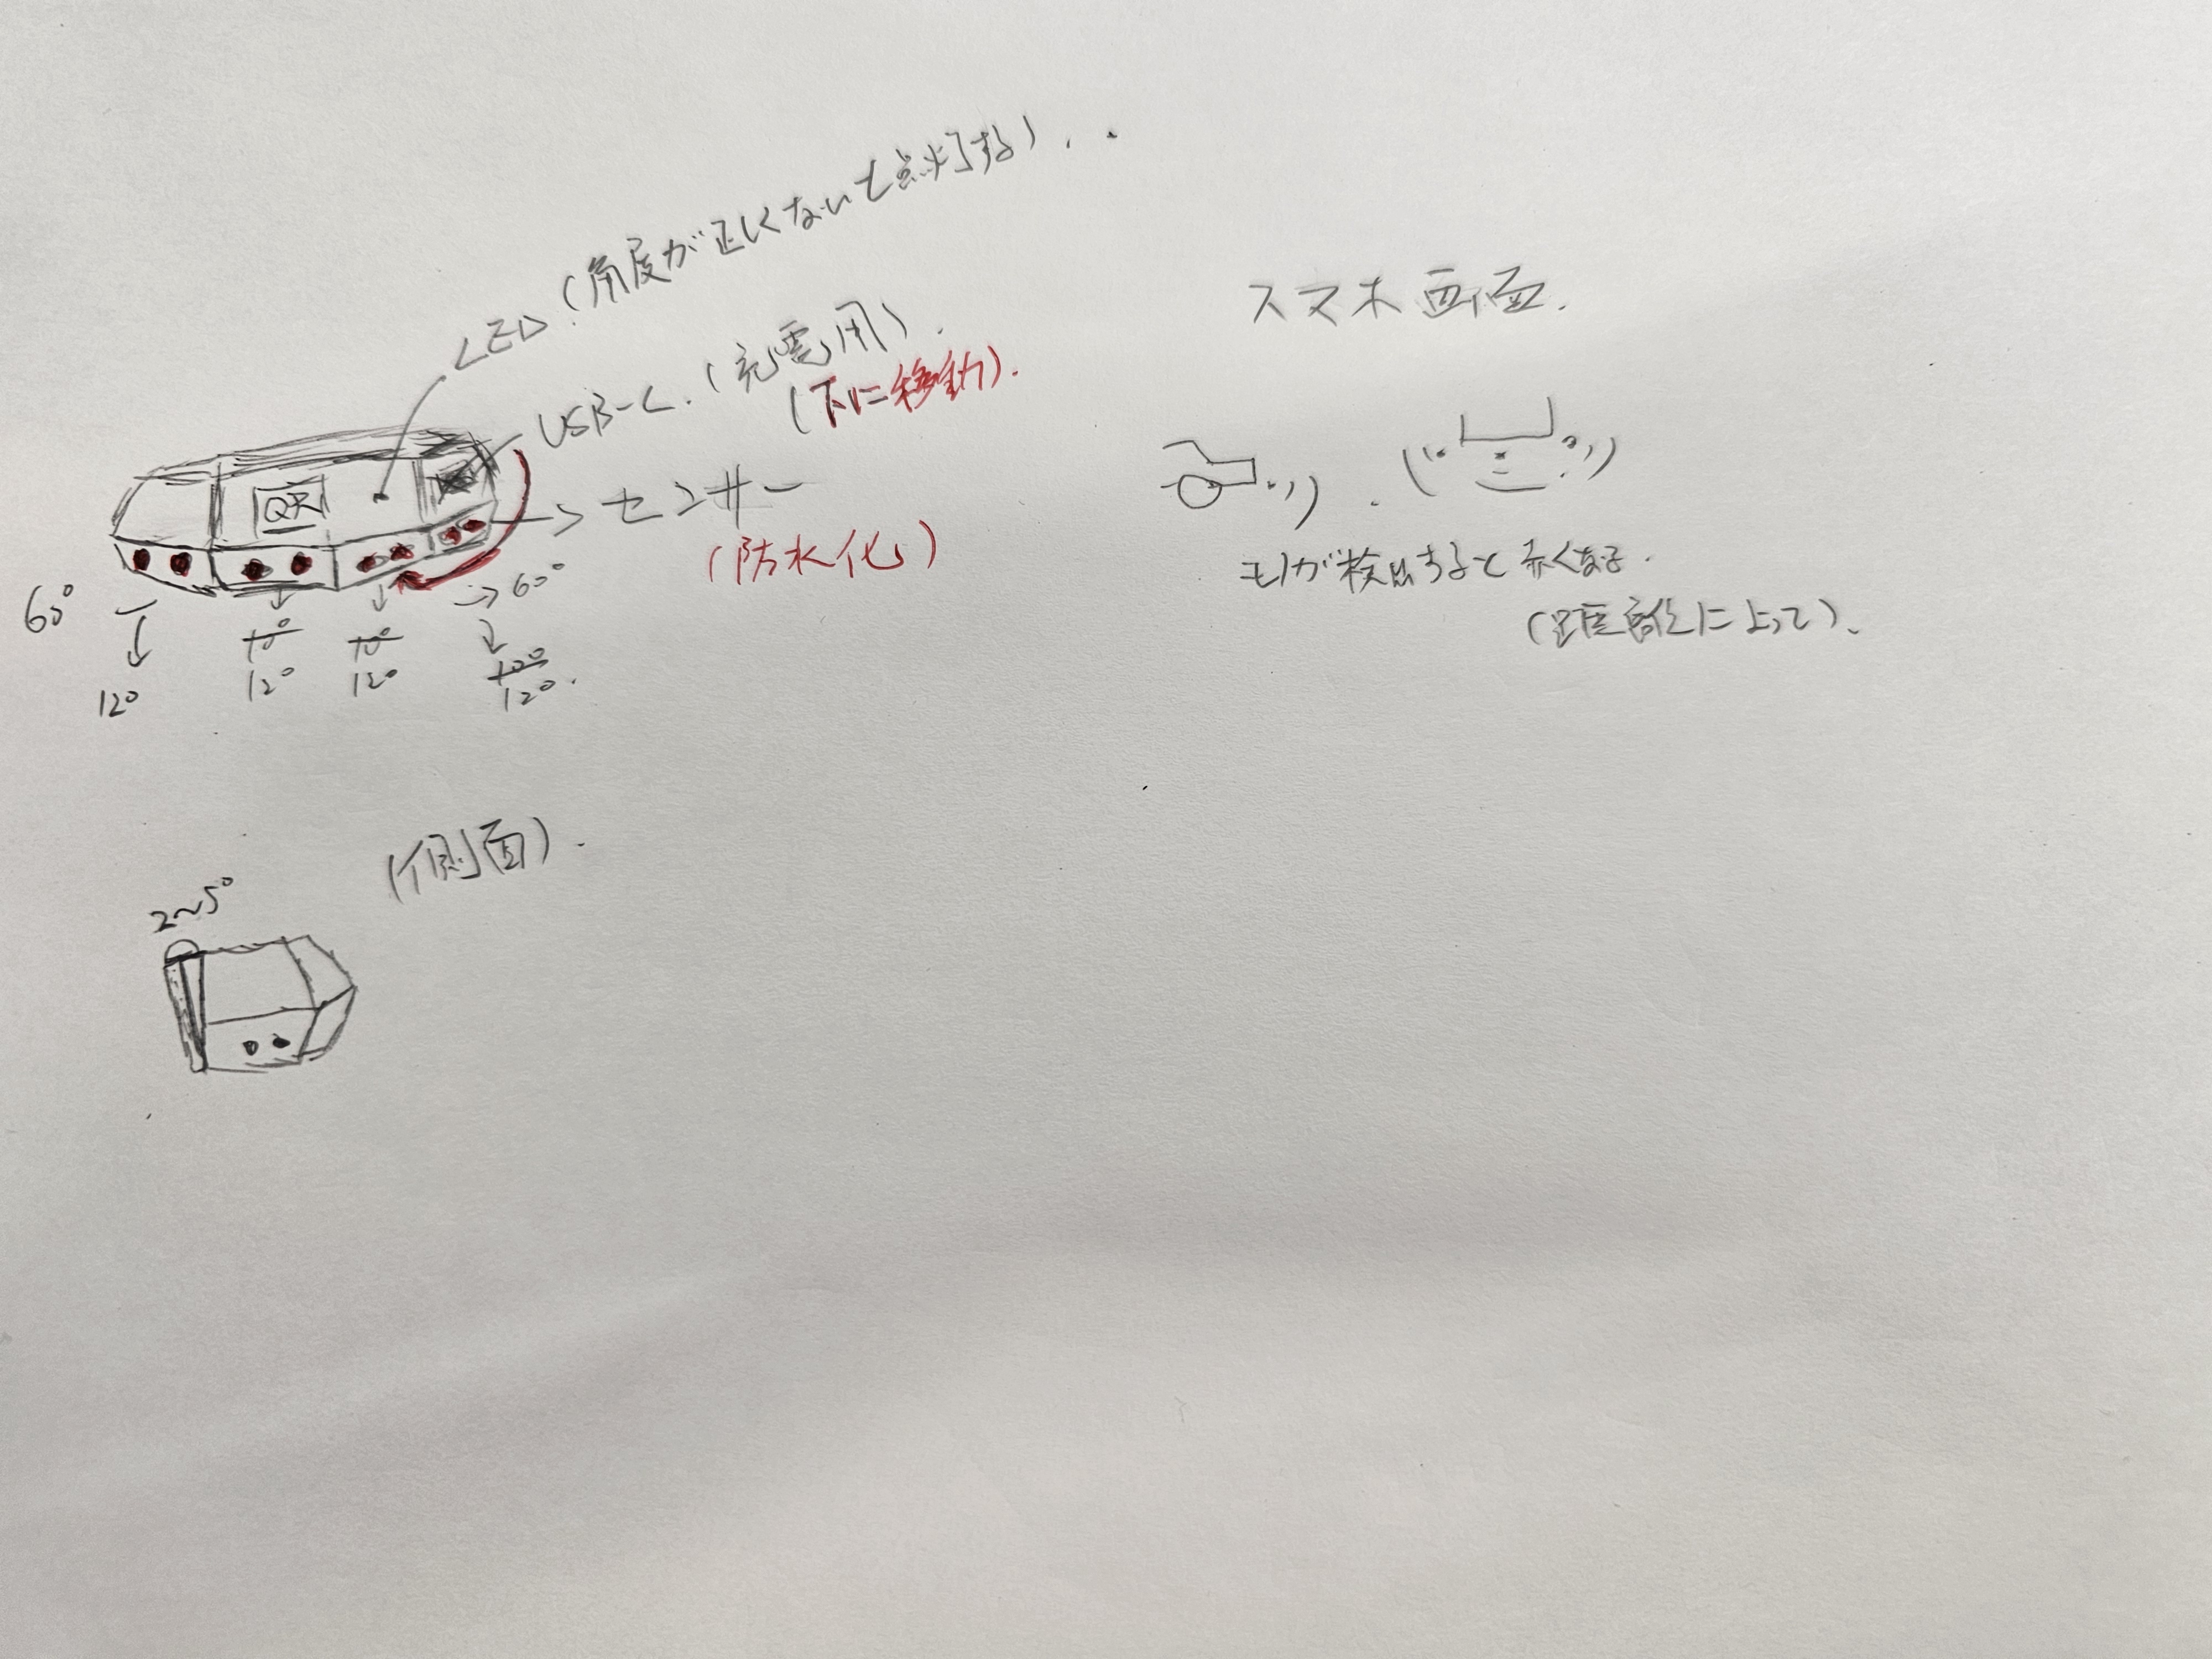 LED (角度が正しくないと点灯する)
USB-C. (充電用).
(下に移動).
QR
センサー
(防水化)
60°
→ 60°
120
120
120
120.
(側面).
2~5°
スマホ画面.
モノが検出すると赤くなる.
(距離によって).